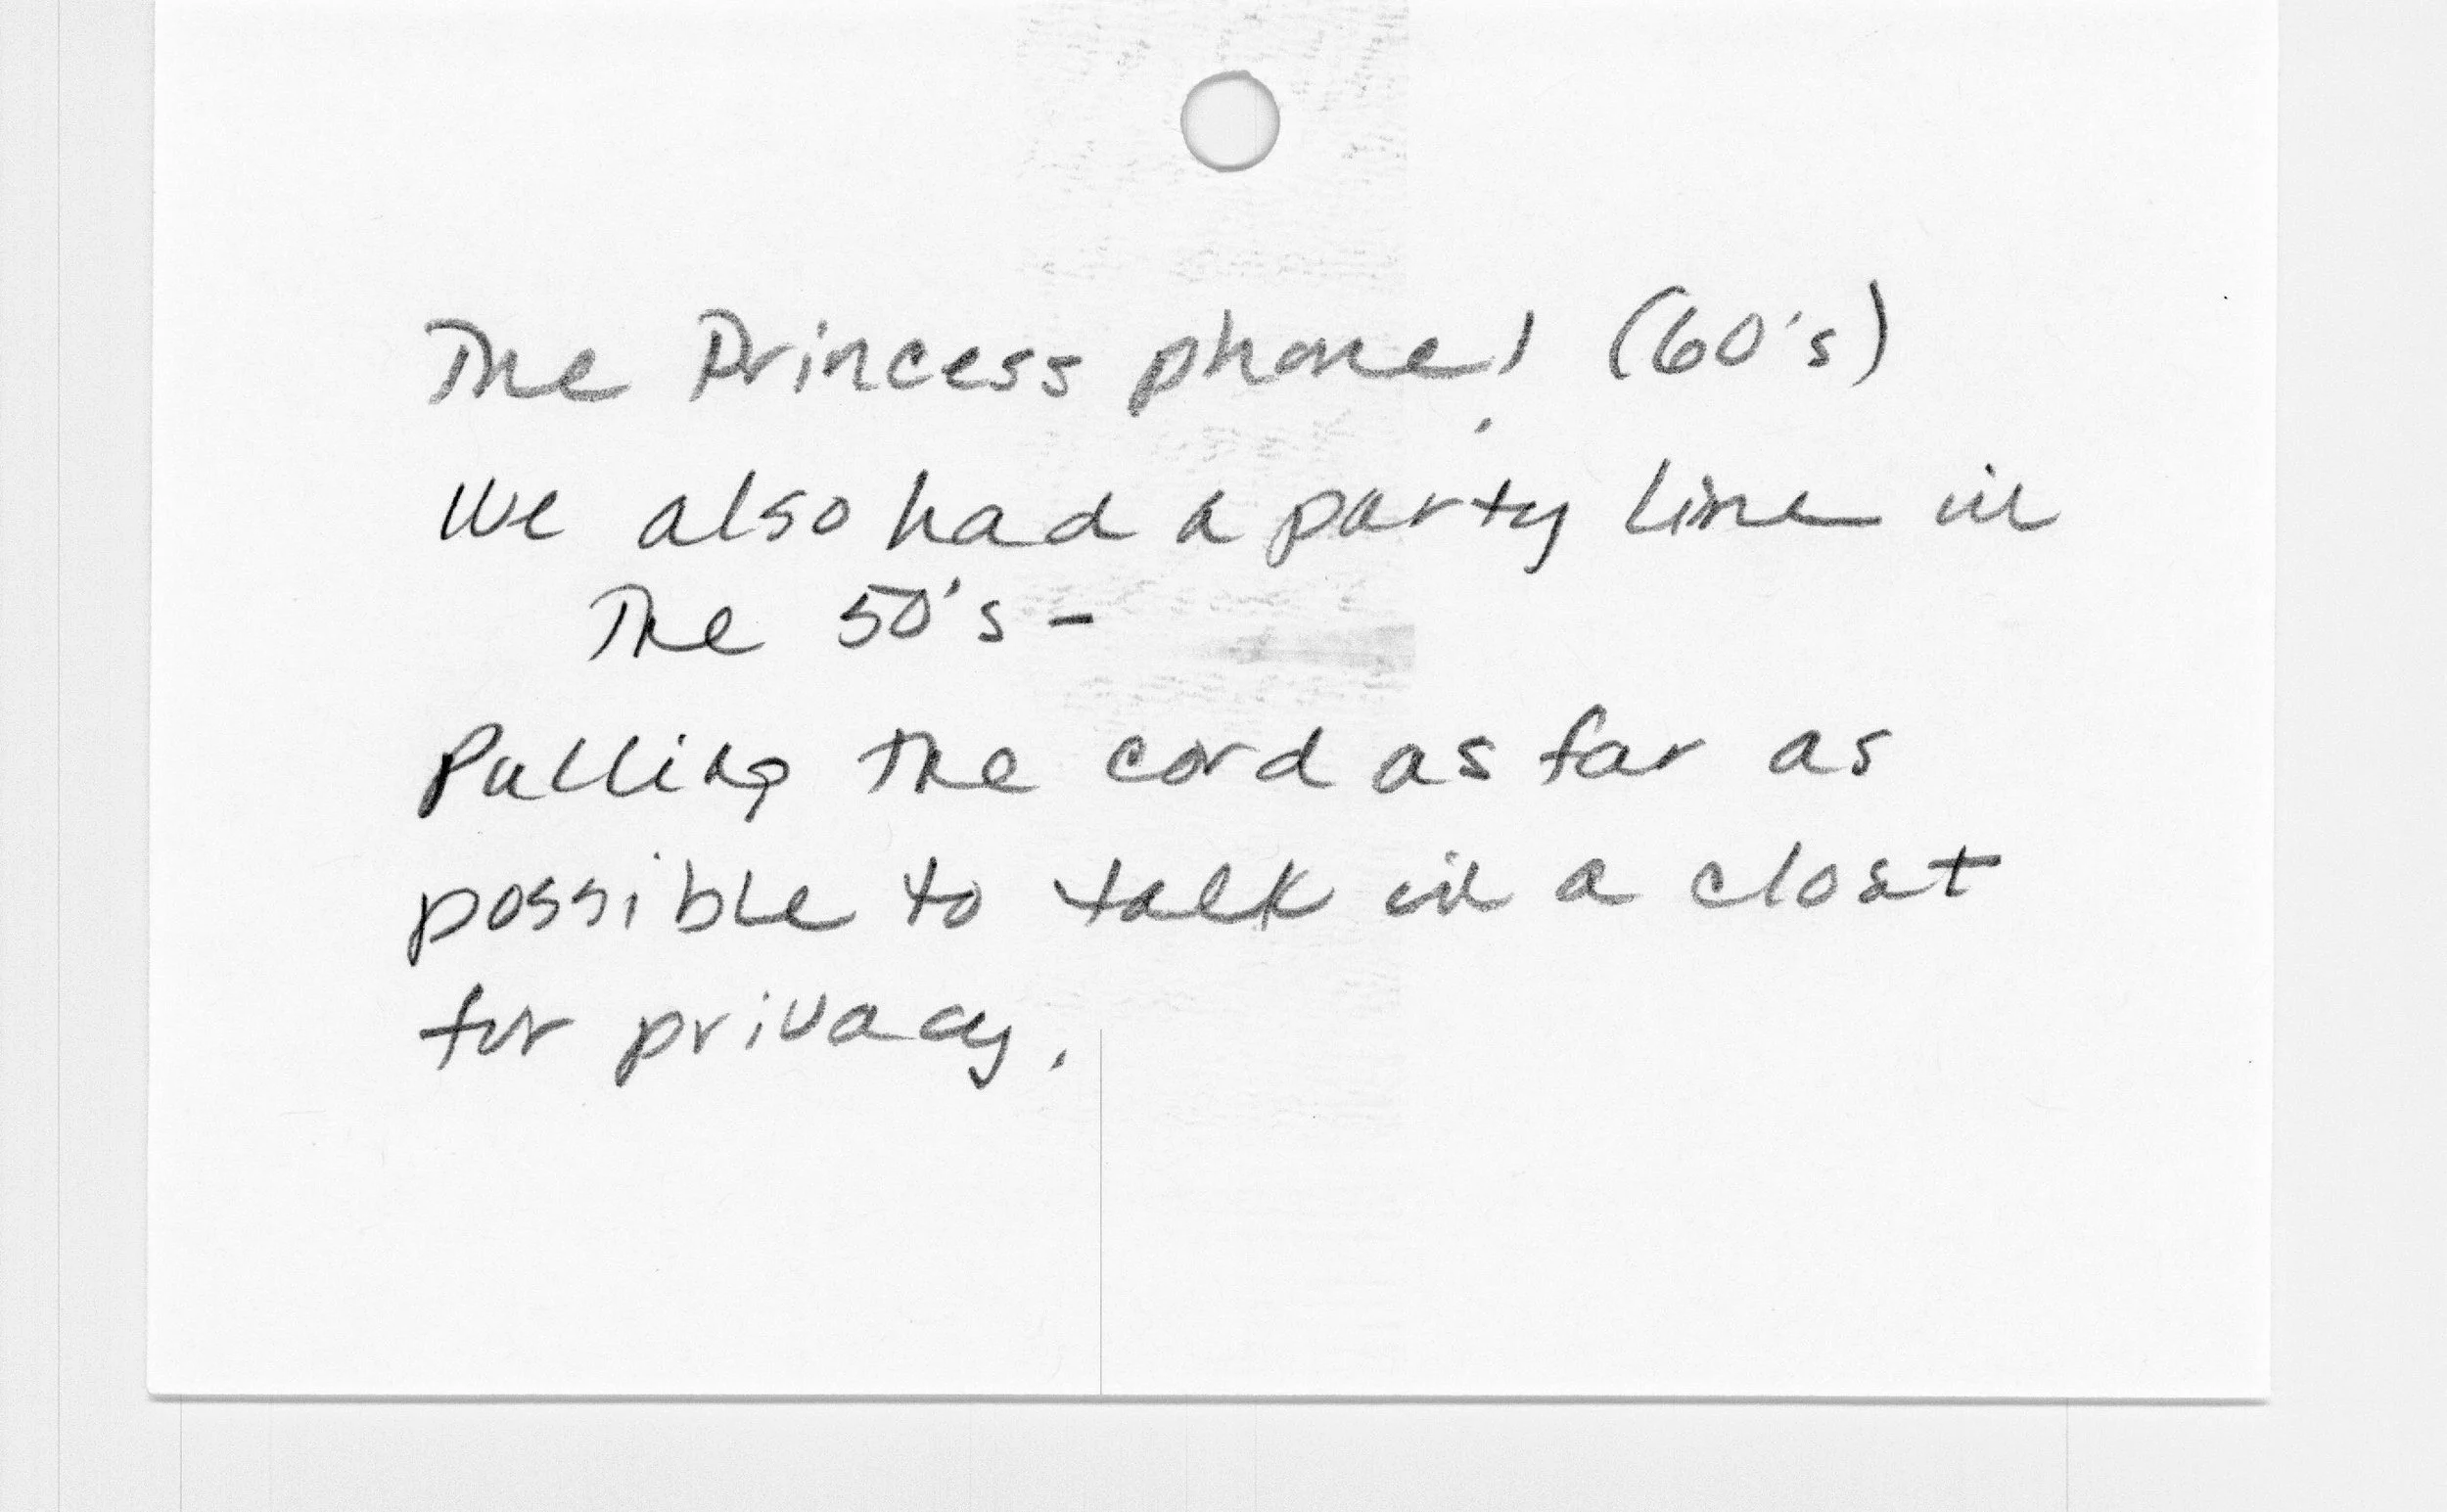 The Princess phone! (60's)
We also had a party line in
The 50's -
Pulling the cord as far as
possible to talk in a closet
for privacy.